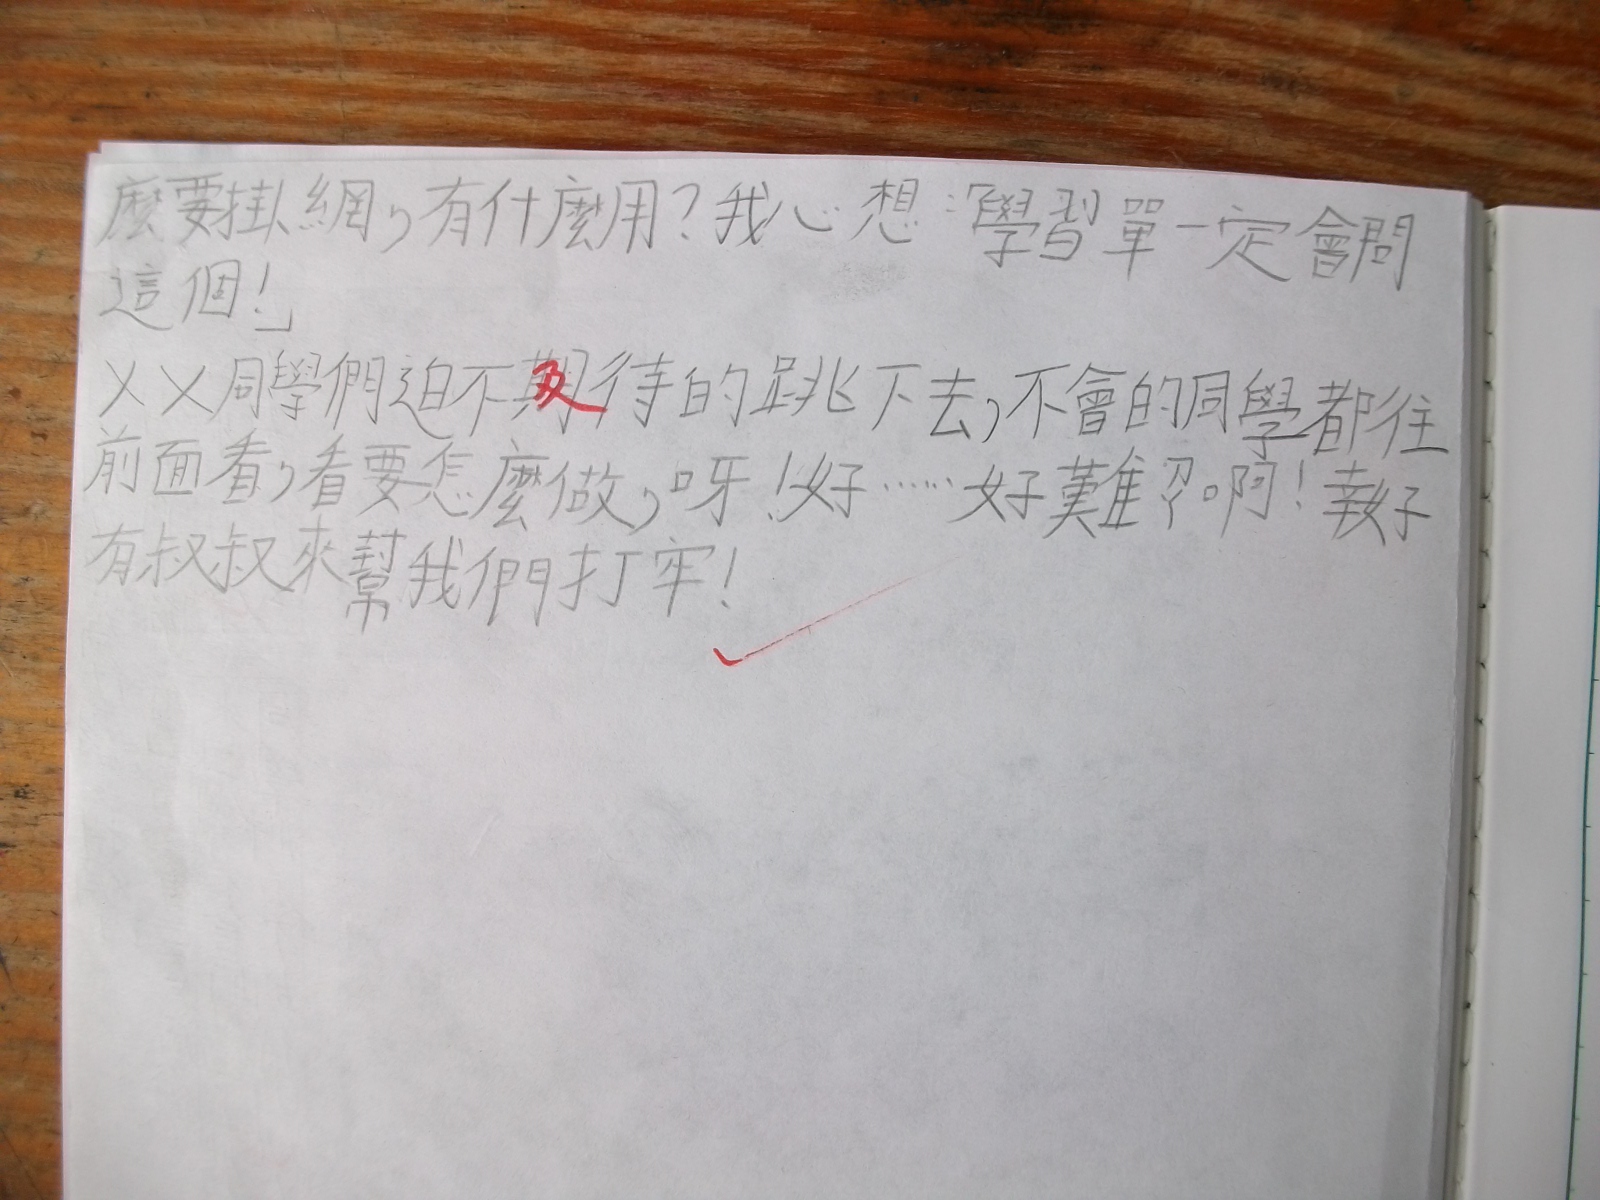 麼要掛網,有什麼用?我心想:「學習單一定會問
這個!」
××同學們迫不及待的跳下去,不會的同學都往
前面看,看要怎麼做,呀!好……好難啊!幸好
有叔叔來幫我們打牢!